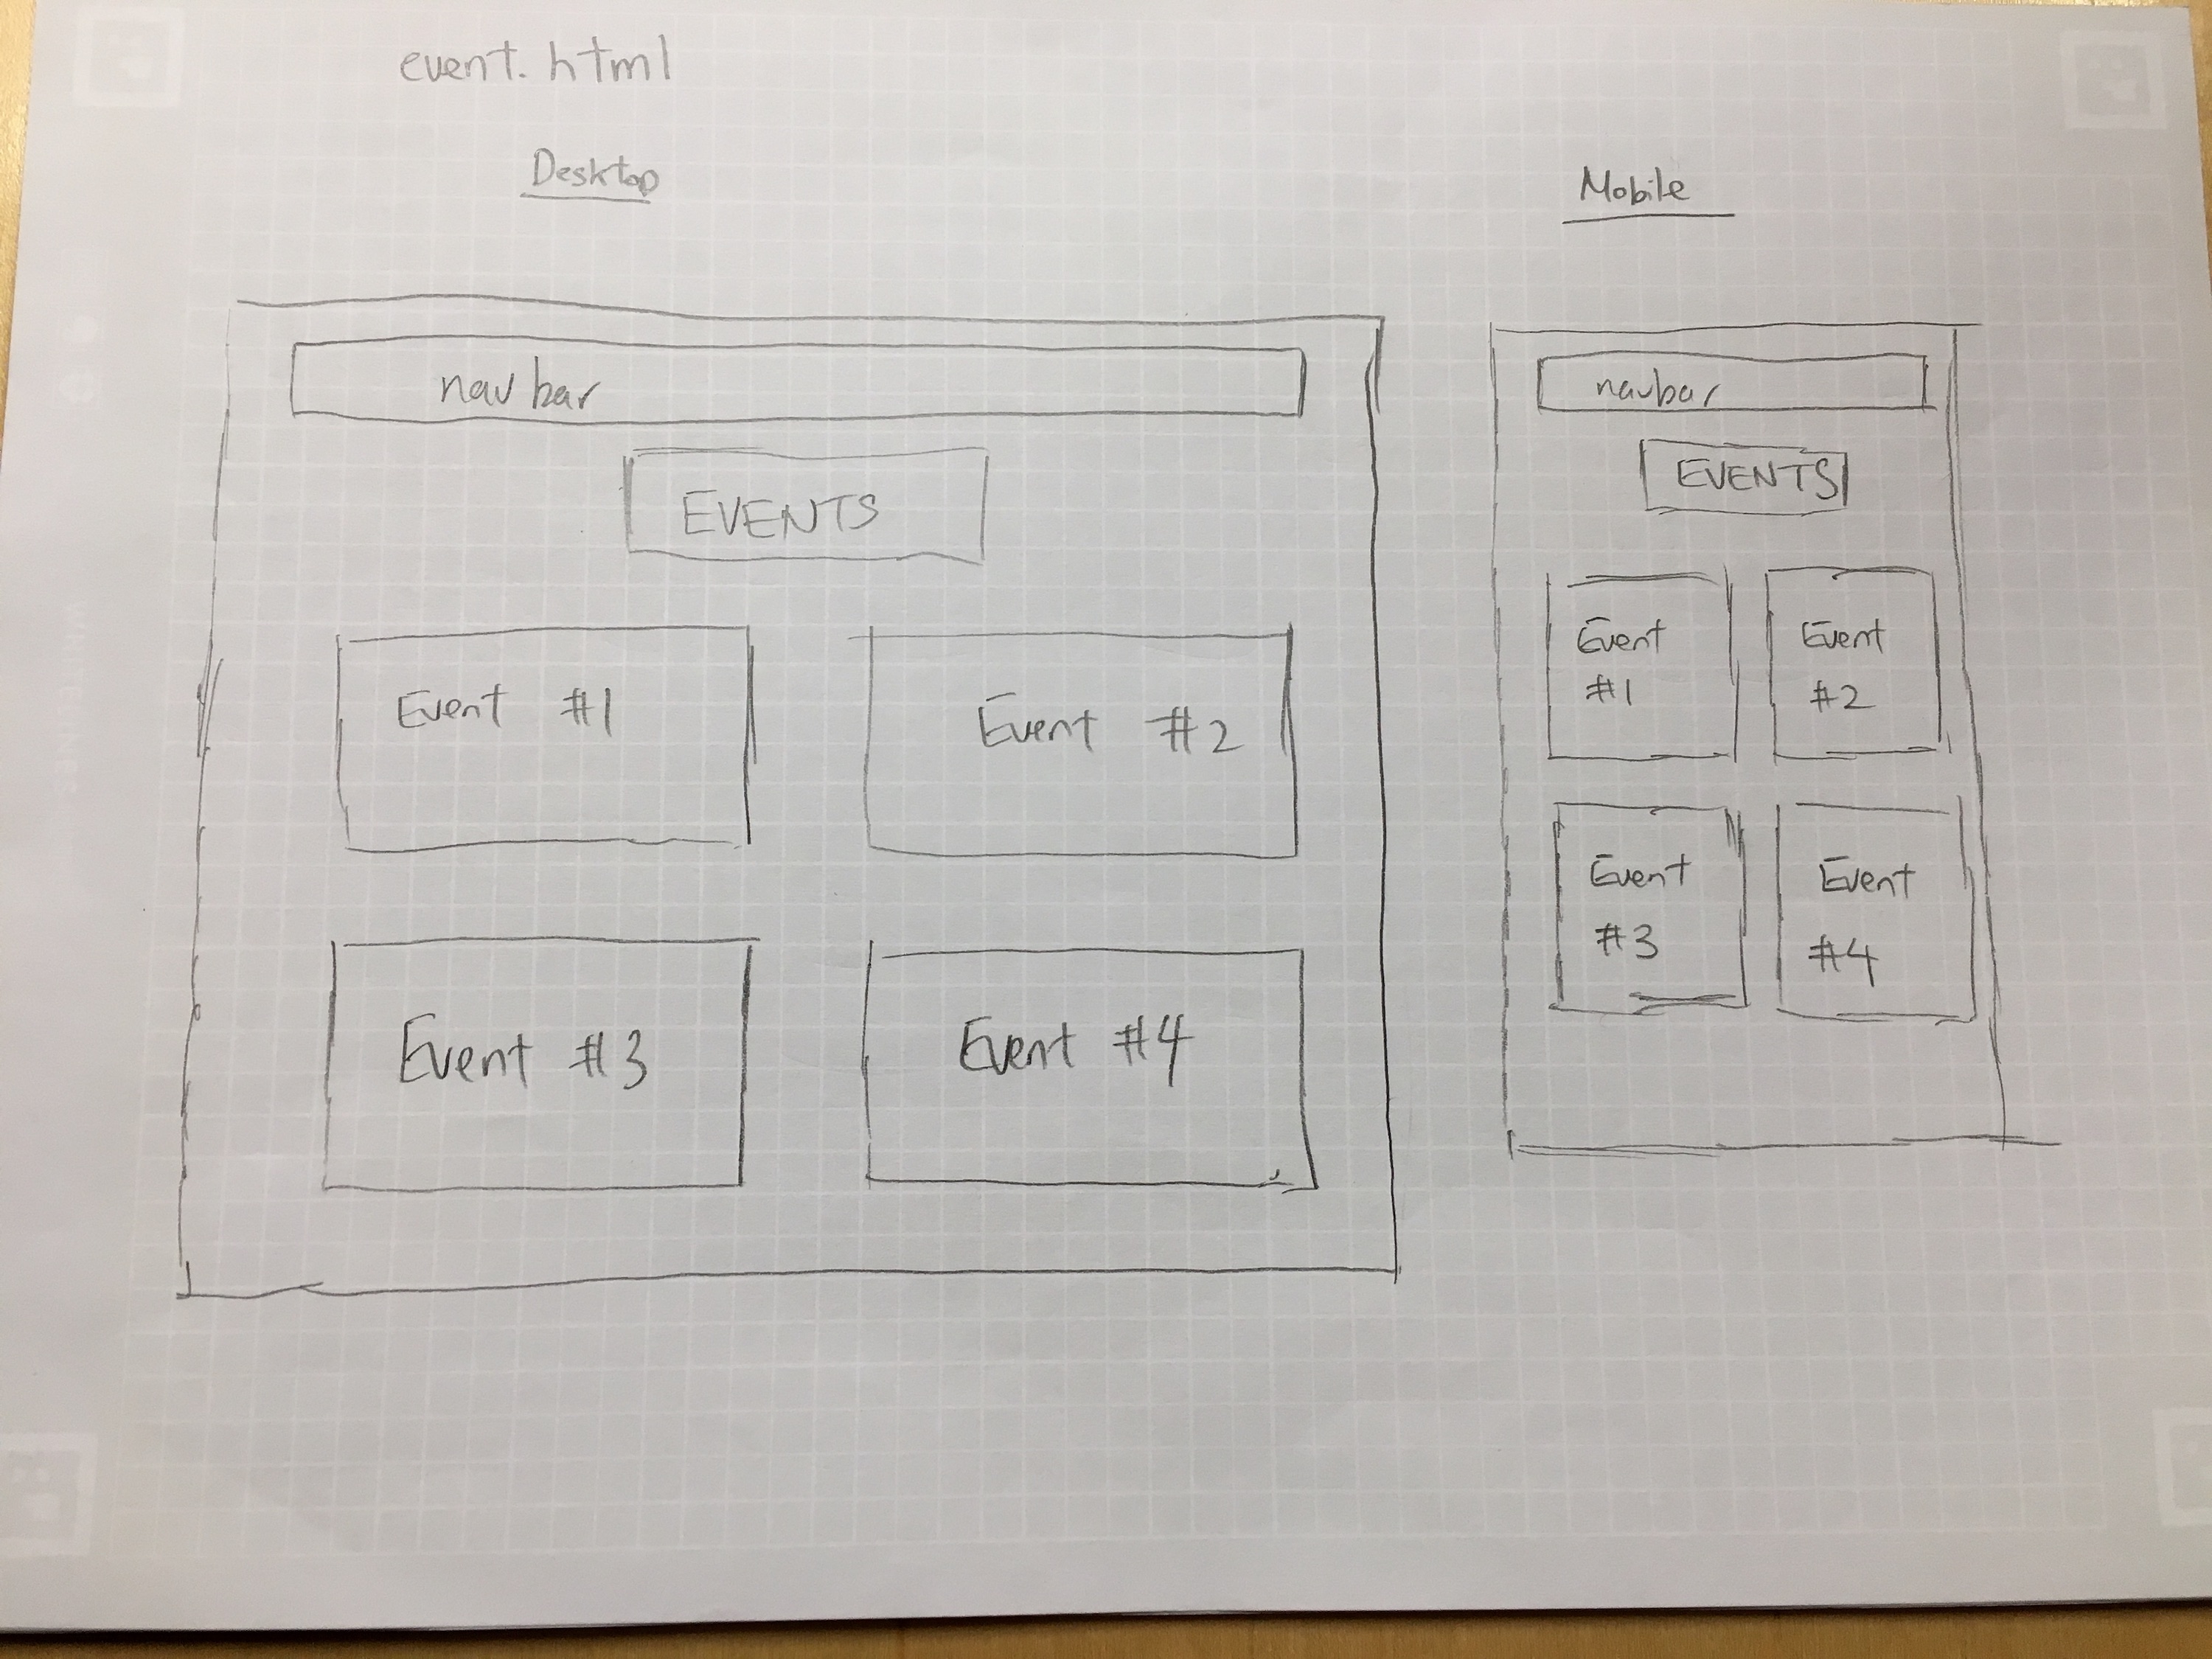 event.html
Desktop
navbar
EVENTS
Event #1
Event #2
Event #3
Event #4
Mobile
navbar
EVENTS
Event
#1
Event
#2
Event
#3
Event
#4